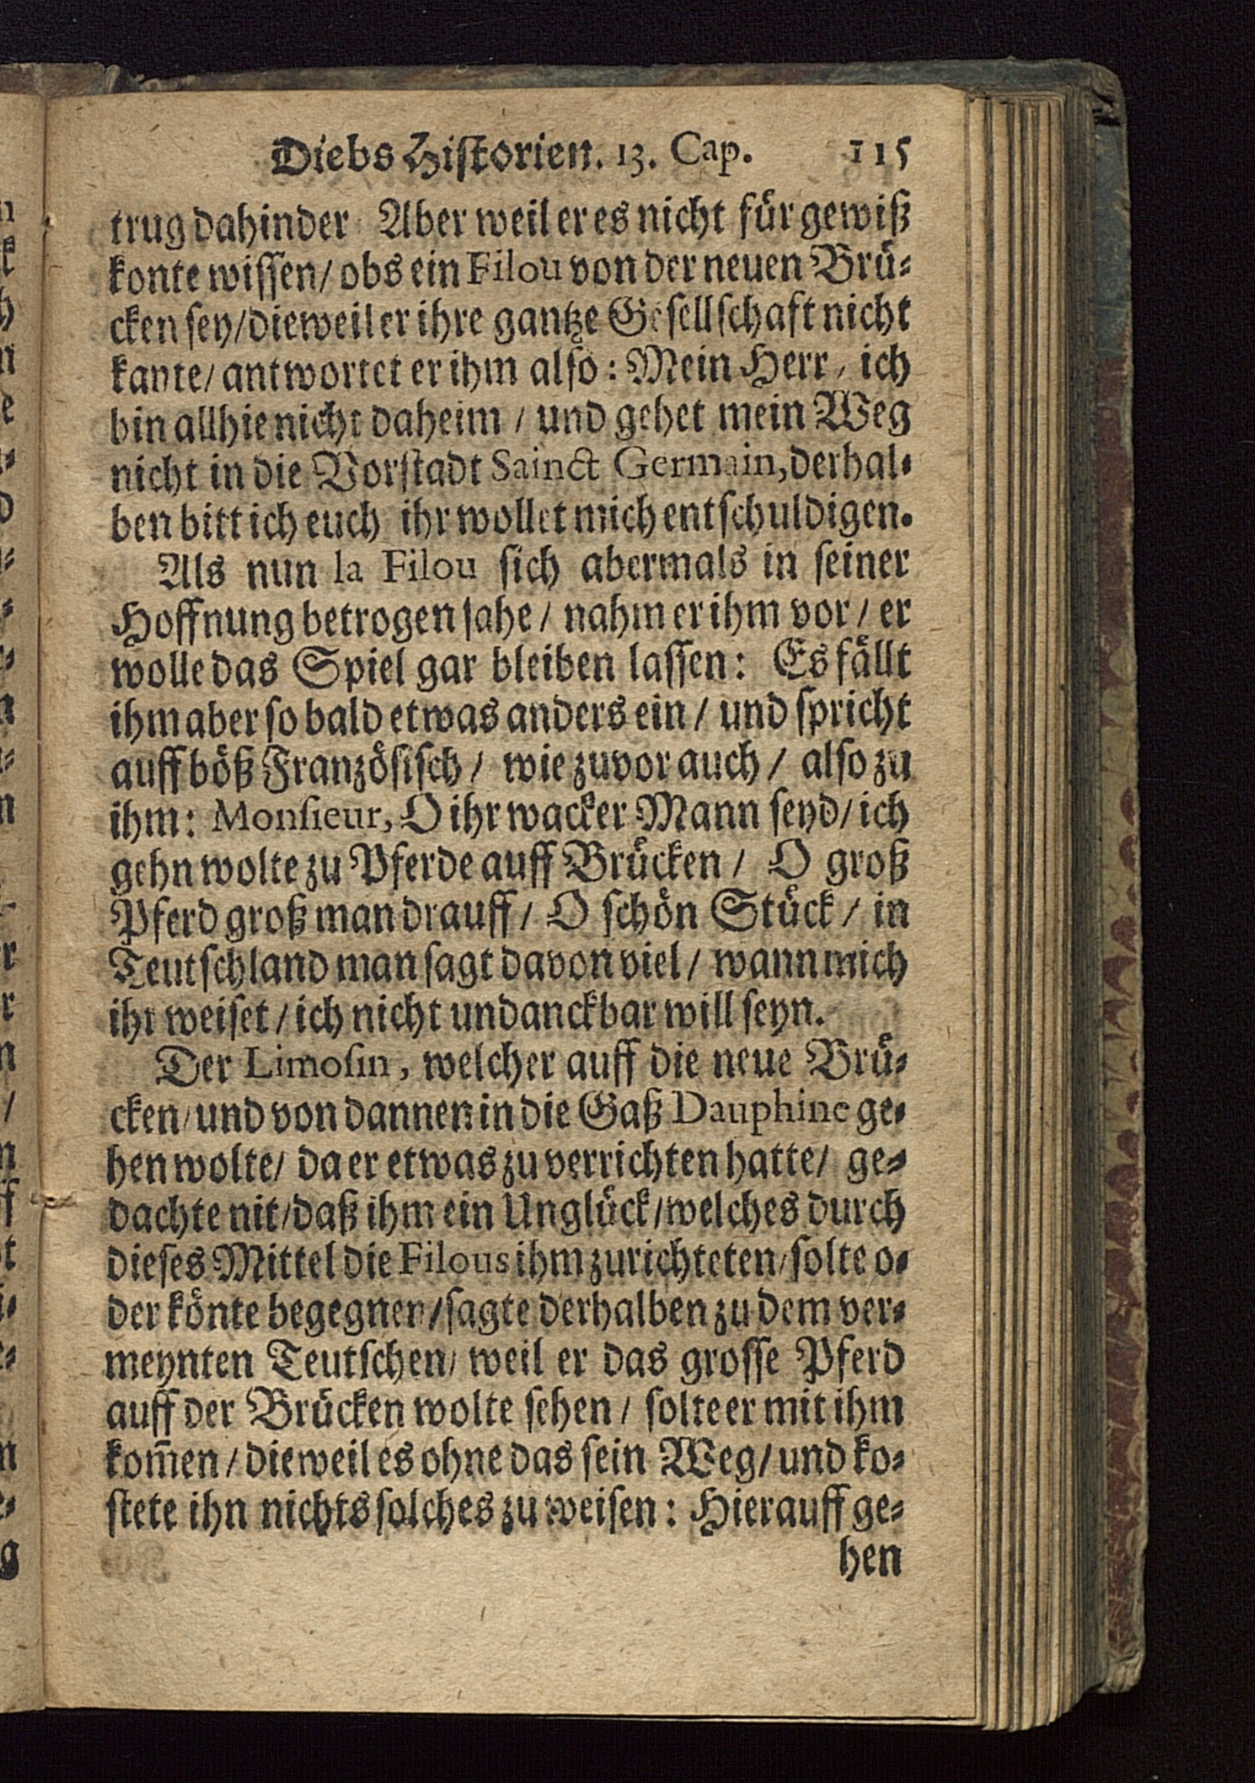 Diebs Historien. 13. Cap. 115
trug dahinder Aber weil er es nicht für gewiß
konte wissen/ obs ein Filou von der neuen Brü-
cken sey/dieweil er ihre gantze Gesellschaft nicht
kante/ antwortet er ihm also: Mein Herr, ich
bin allhie nicht daheim / und gehet mein Weg
nicht in die Vorstadt Sainct Germain, derhal-
ben bitt ich euch ihr wollet mich entschuldigen.
Als nun la Filou sich abermals in seiner
Hoffnung betrogen sahe / nahm er ihm vor / er
wolle das Spiel gar bleiben lassen: Es fällt
ihm aber so bald etwas anders ein / und spricht
auff böß Französisch / wie zuvor auch / also zu
ihm: Monsieur, O ihr wacker Mann seyd/ ich
gehn wolte zu Pferde auff Brücken / O groß
Pferd groß man drauff / O schön Stück / in
Teutschland man sagt davon viel / wann mich
ihr weiset / ich nicht undanckbar will seyn.
Der Limosin, welcher auff die neue Brü-
cken/ und von dannen in die Gaß Dauphine ge-
hen wolte/ da er etwas zu verrichten hatte/ ge-
dachte nit/daß ihm ein Unglück/welches durch
dieses Mittel die Filous ihm zurichteten/solte o-
der könte begegnen/sagte derhalben zu dem ver-
meynten Teutschen/ weil er das grosse Pferd
auff der Brücken wolte sehen / solte er mit ihm
kom̄en / dieweil es ohne das sein Weg/ und ko-
stete ihn nichts solches zu weisen: Hierauff ge-
hen